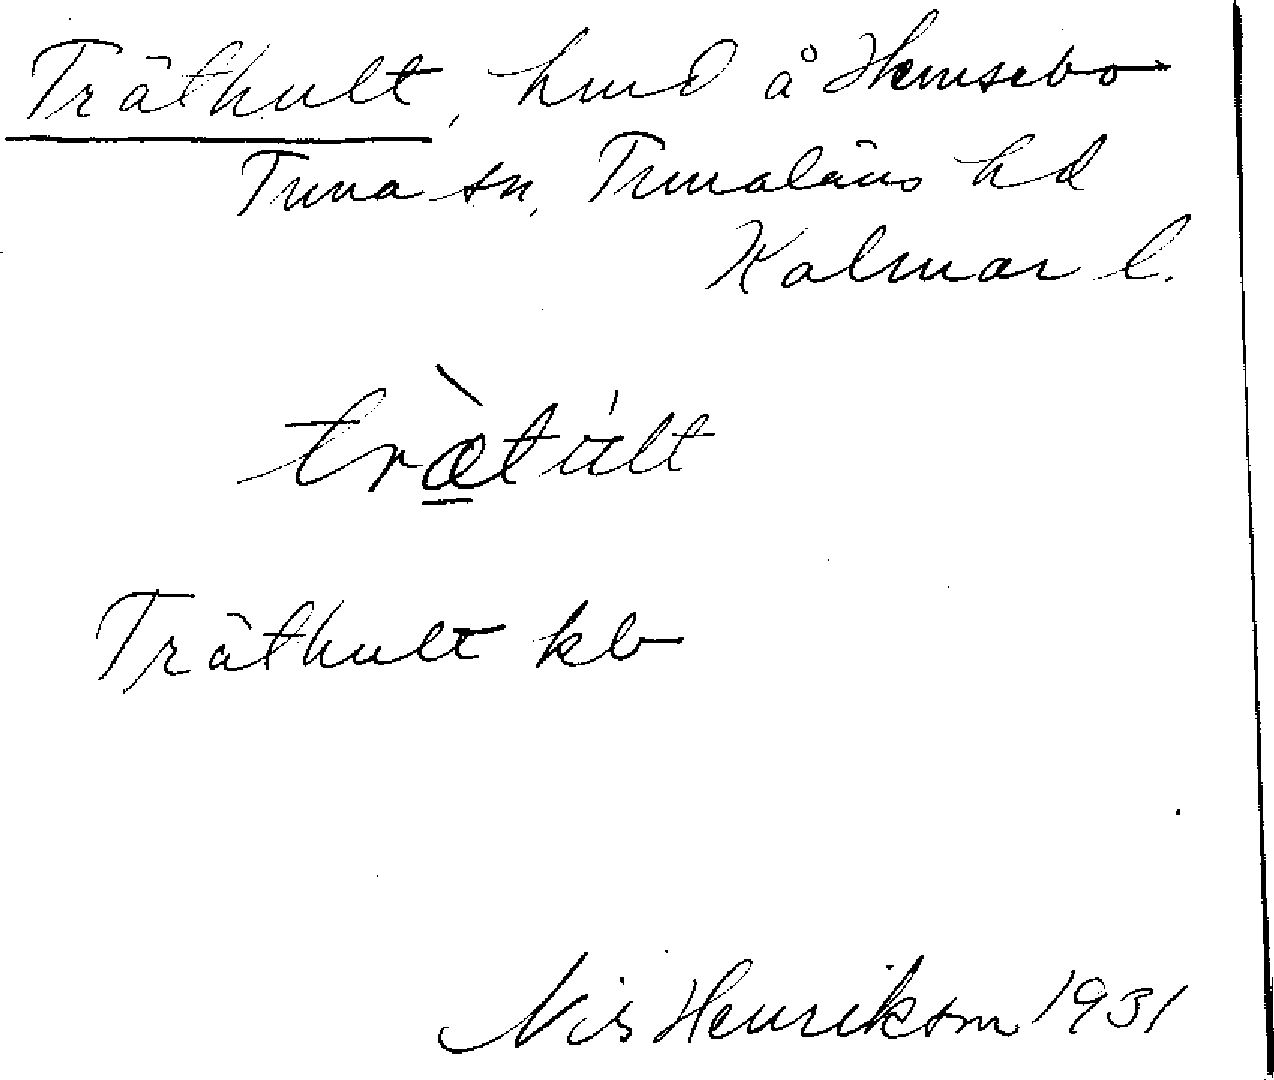 Träthult, hmd å Hemsebo
Tuna sn, Tunaläns hd
Kalmar l.
trætult
Träthult kb
Nils Henrikson 1931